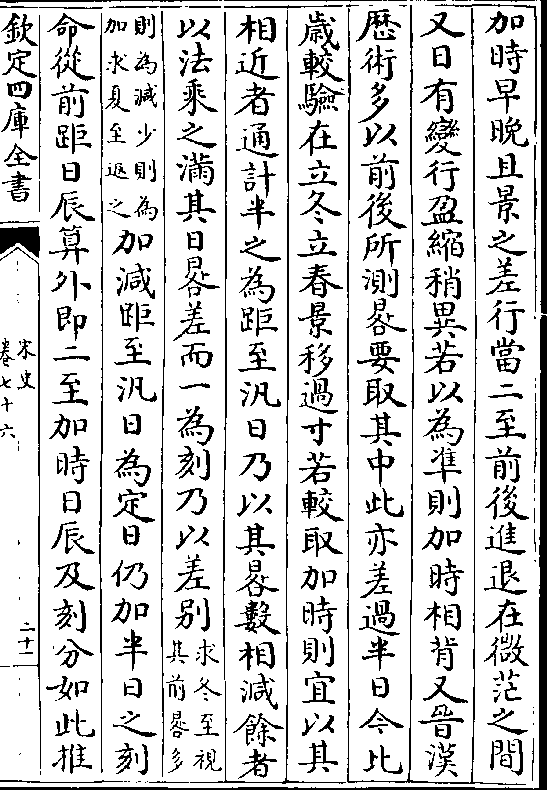 加時早晚且景之差行當二至前後進退在微茫之間
又日有變行盈縮稍異若以為凖則加時相背又晉漢
厯術多以前後所測晷要取其中此亦差過半日今比
歲較驗在立冬立春景移過寸若較取加時則宜以其
相近者通計半之為距至汎日乃以其晷數相減餘者
以法乗之滿其日晷差而一為刻乃以差刻求冬至視其前晷多
則為減少則為加求夏至返之加減距至汎日為定日仍加半日之刻
命從前距日辰算外即二至加時日辰及刻分如此推
欽定四庫全書
宋史
卷七十六
二十二